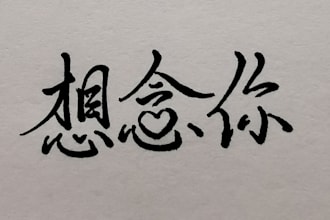 想念你